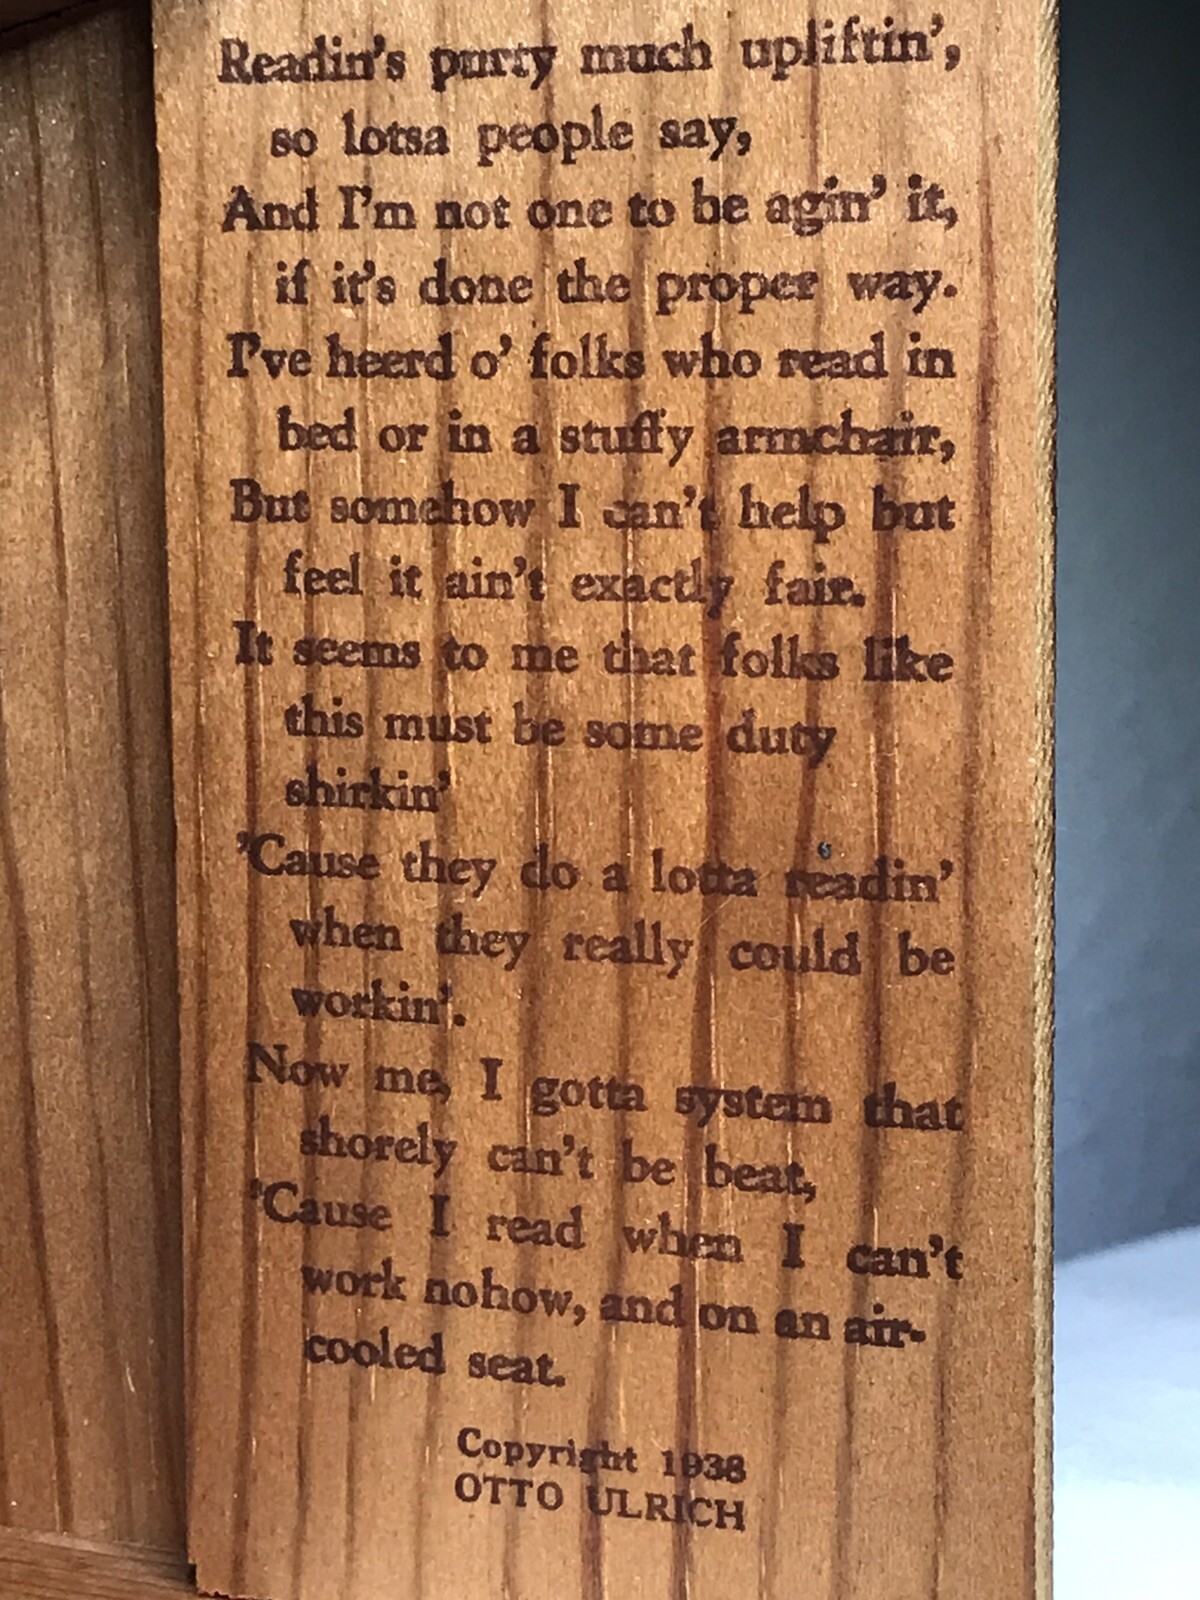 Readin's purty much upliftin',
so lotsa people say,
And I'm not one to be agin' it,
if it's done the proper way.
I've heerd o' folks who read in
bed or in a stuffy armchair,
But somehow I can't help but
feel it ain't exactly fair.
It seems to me that folks like
this must be some duty
shirkin'
'Cause they do a lotta readin'
when they really could be
workin'.
Now me, I gotta system that
shorely can't be beat,
'Cause I read when I can't
work nohow, and on an air-
cooled seat.
Copyright 1938
OTTO ULRICH